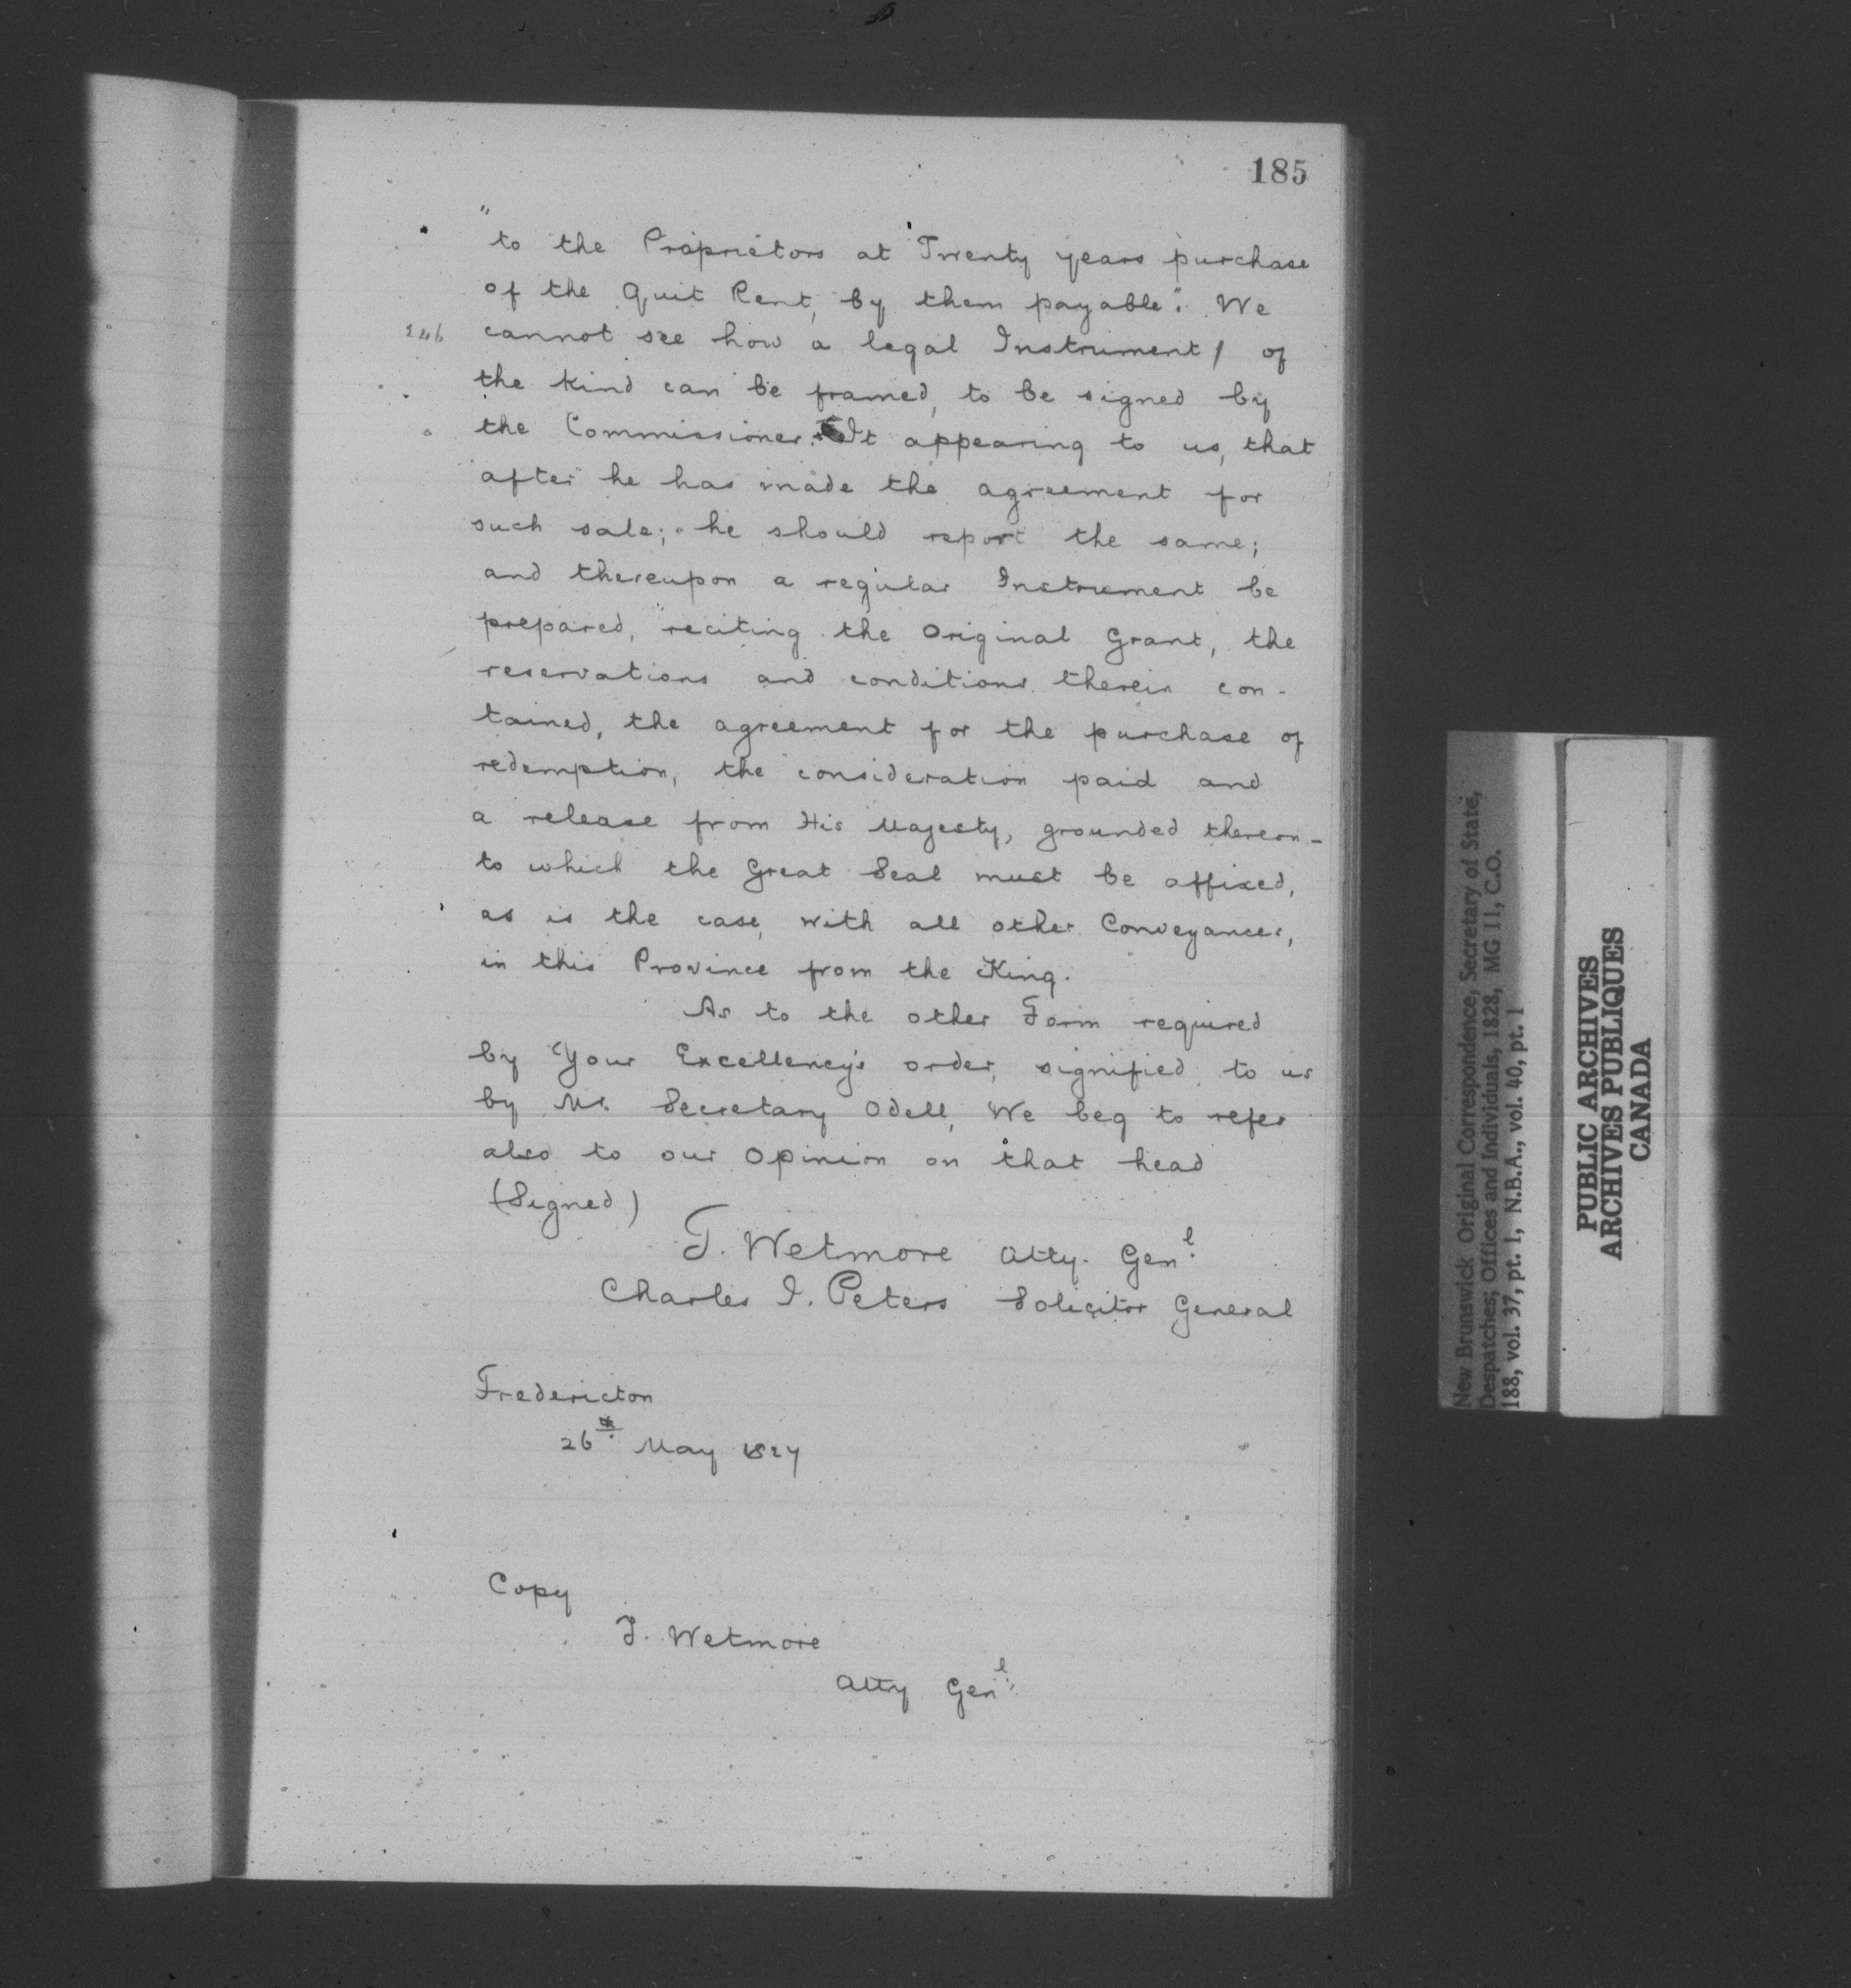 185
"to the Proprietors at Twenty years purchase
of the Quit Rent, by them payable". We
246 cannot see how a legal Instrument / of
the kind can be framed, to be signed by
the Commissioner. It appearing to us, that
after he has made the agreement for
such sale; he should report the same;
and thereupon a regular Instrument be
prepared, reciting the Original Grant, the
reservations and conditions therein con-
tained, the agreement for the purchase of
redemption, the consideration paid and
a release from His Majesty, grounded thereon -
to which the Great Seal must be affixed,
as is the case, with all other Conveyances,
in this Province from the King.
As to the other Form required
by Your Excellency's order, signified to us
by Mr. Secretary Odell, We beg to refer
also to our Opinion on that head
(Signed)
T. Wetmore Atty. Genl.
Charles I. Peters Solicitor General
Fredericton
26th May 1827
Copy
T. Wetmore
Atty Genl.
New Brunswick Original Correspondence, Secretary of State,
Despatches; Offices and Individuals, 1828, MG 11, C.O.
188, vol. 37, pt. 1, N.B.A., vol. 40, pt. 1
PUBLIC ARCHIVES
ARCHIVES PUBLIQUES
CANADA